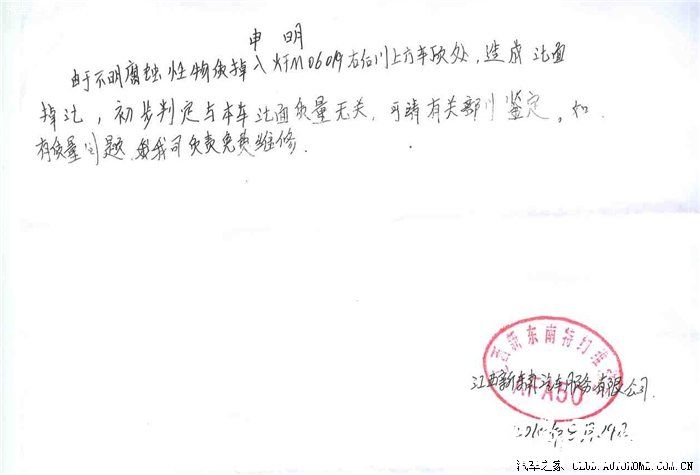 申明
由于不明腐蚀性物质掉入KFM0609右后门上方车顶处，造成漆面
掉漆，初步判定与本车漆面质量无关，可请有关部门鉴定，如
有质量问题 我司负责免费维修.
东南特约维
江西新东南汽车服务有限公司
汽车之家 CLUB.AUTOHOME.COM.CN